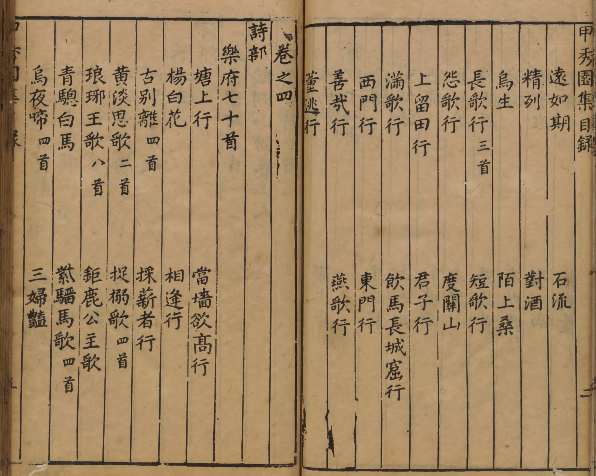 甲秀園集目録
遠如期 石流
精列 對酒
烏生 陌上桑
長歌行三首 短歌行
怨歌行 度關山
上留田行 君子行
滿歌行 飲馬長城窟行
西門行 東門行
善哉行 燕歌行
董逃行
卷之四
詩部
樂府七十首
塘上行 當墻欲高行
楊白花 相逢行
古別離四首 採薪者行
黃淡思歌二首 捉搦歌四首
琅琊王歌八首 鉅鹿公主歌
青驄白馬 紫騮馬歌四首
烏夜啼四首 三婦豔